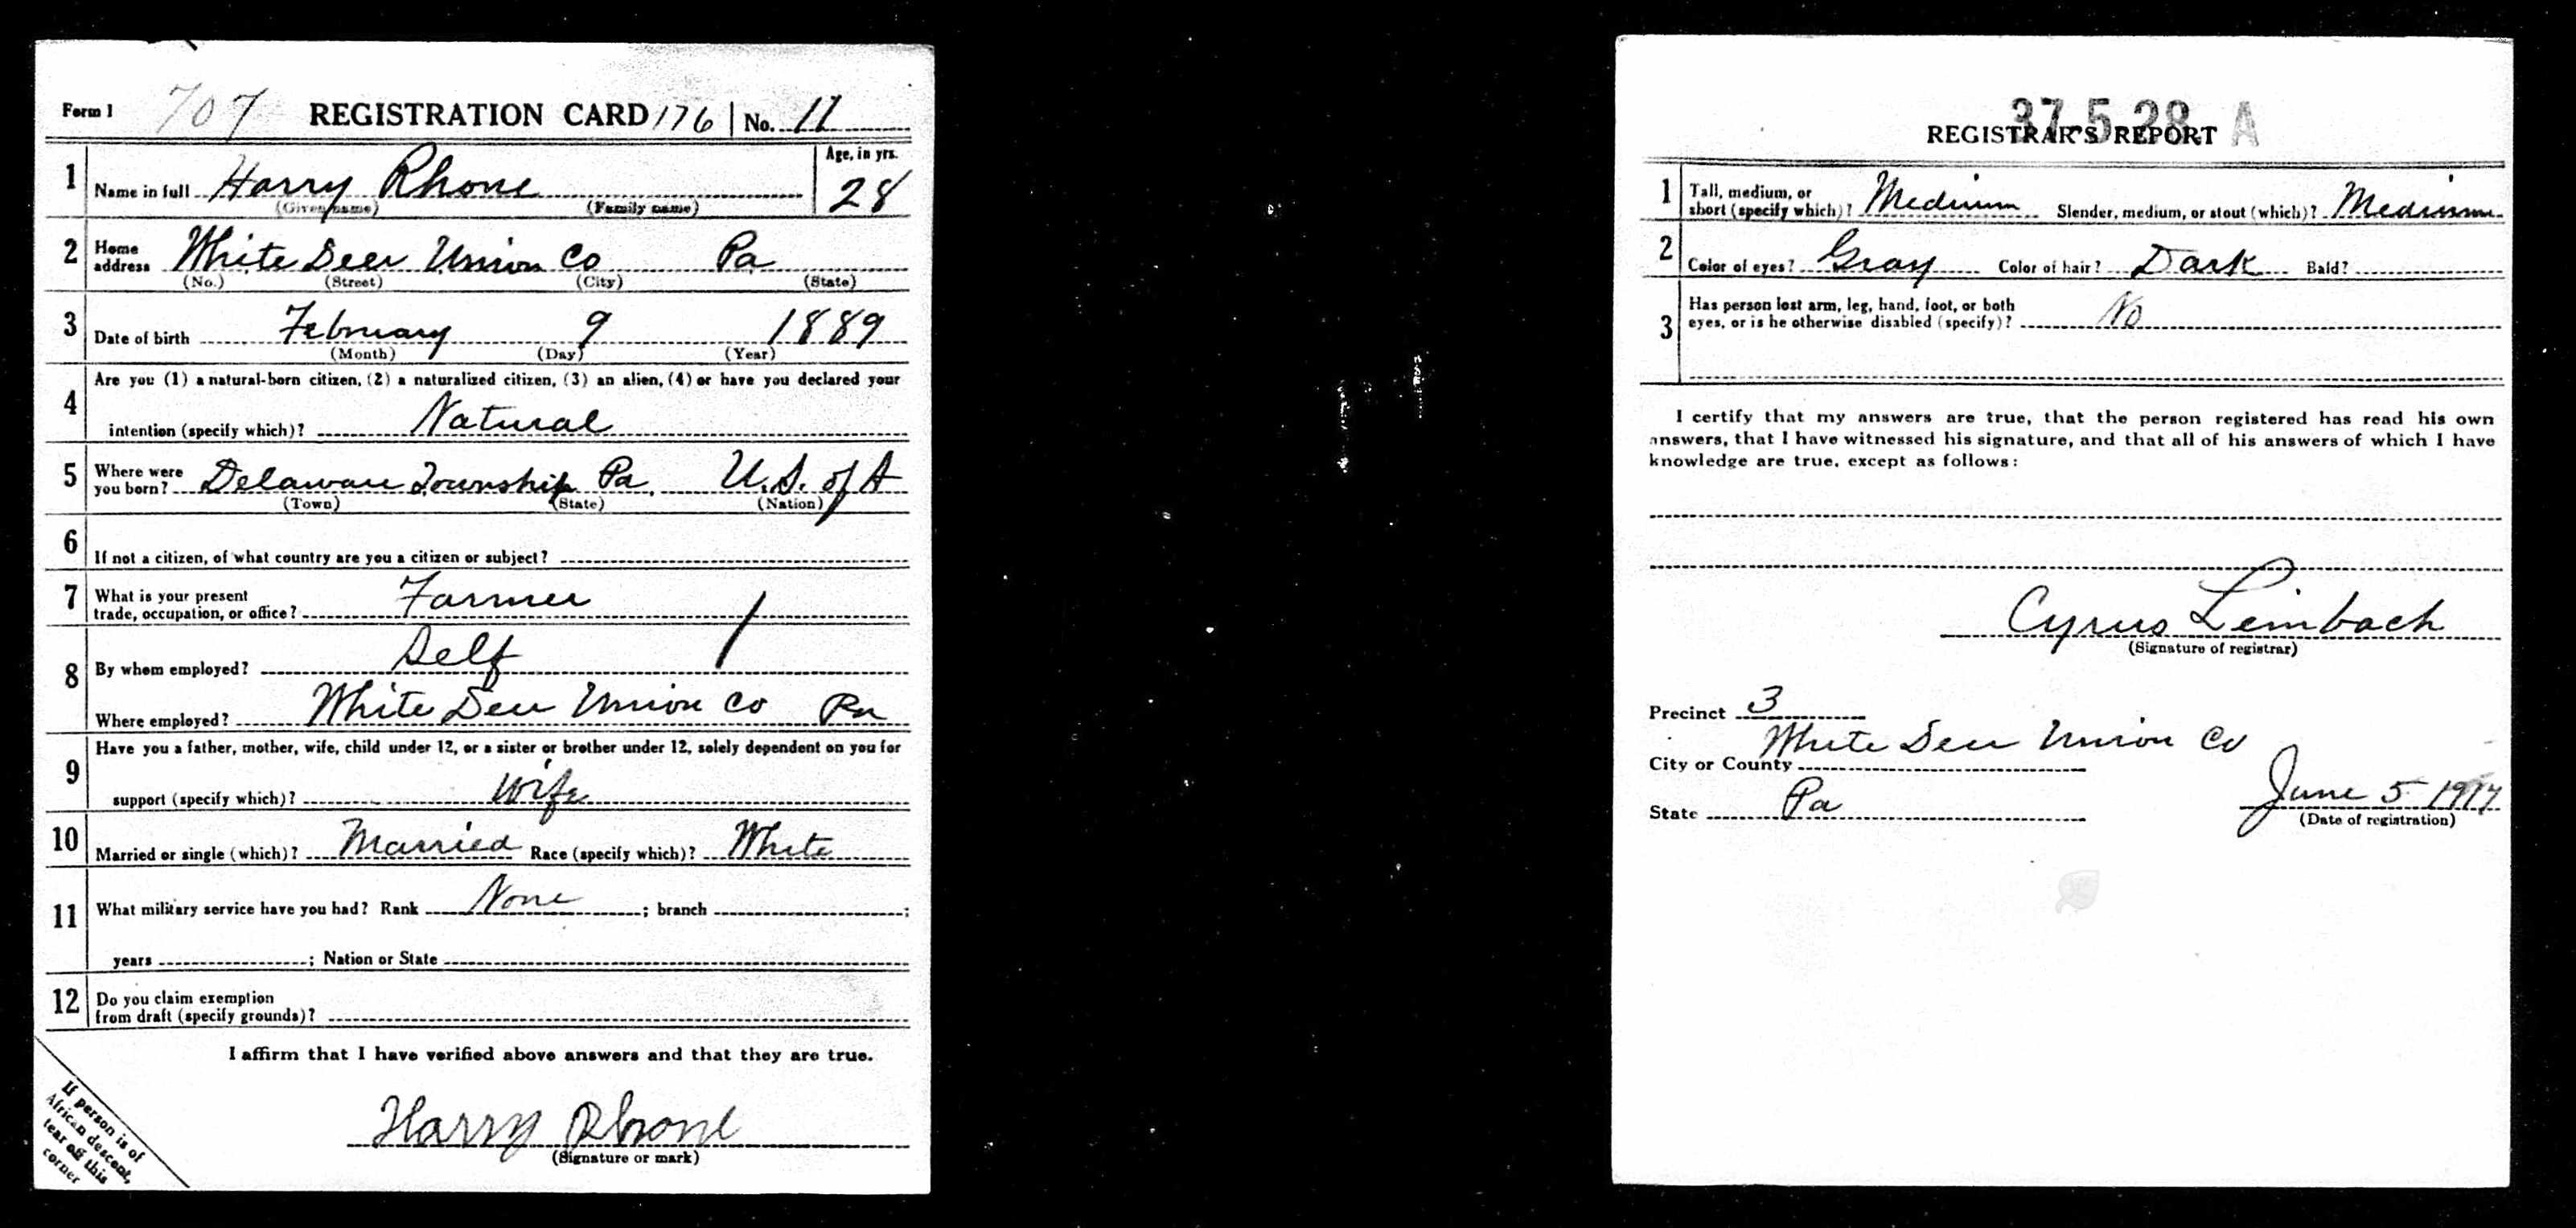 Form 1 707 REGISTRATION CARD 176 No. 11
1 Name in full Harry Rhone Age, in yrs. 28
(Given name) (Family name)
2 Home address White Deer Union Co Pa
(No.) (Street) (City) (State)
3 Date of birth February 9 1889
(Month) (Day) (Year)
4 Are you (1) a natural-born citizen, (2) a naturalized citizen, (3) an alien, (4) or have you declared your
intention (specify which)? Natural
5 Where were you born? Delaware Township Pa. U.S. of A
(Town) (State) (Nation)
6 If not a citizen, of what country are you a citizen or subject?
7 What is your present
trade, occupation, or office? Farmer
8 By whom employed? Self
Where employed? White Deer Union Co Pa
9 Have you a father, mother, wife, child under 12, or a sister or brother under 12, solely dependent on you for
support (specify which)? Wife
10 Married or single (which)? Married Race (specify which)? White
11 What military service have you had? Rank None ; branch ;
years ; Nation or State
12 Do you claim exemption
from draft (specify grounds)?
I affirm that I have verified above answers and that they are true.
Harry Rhone
(Signature or mark)
If person is of
African descent,
tear off this
corner
37-5-28 A
REGISTRAR'S REPORT
1 Tall, medium, or
short (specify which)? Medium Slender, medium, or stout (which)? Medium
2 Color of eyes? Gray Color of hair? Dark Bald?
3 Has person lost arm, leg, hand, foot, or both
eyes, or is he otherwise disabled (specify)? No
I certify that my answers are true, that the person registered has read his own
answers, that I have witnessed his signature, and that all of his answers of which I have
knowledge are true, except as follows:
Cyrus Leinbach
(Signature of registrar)
Precinct 3
White Deer Union Co
City or County
State Pa
June 5 1917
(Date of registration)